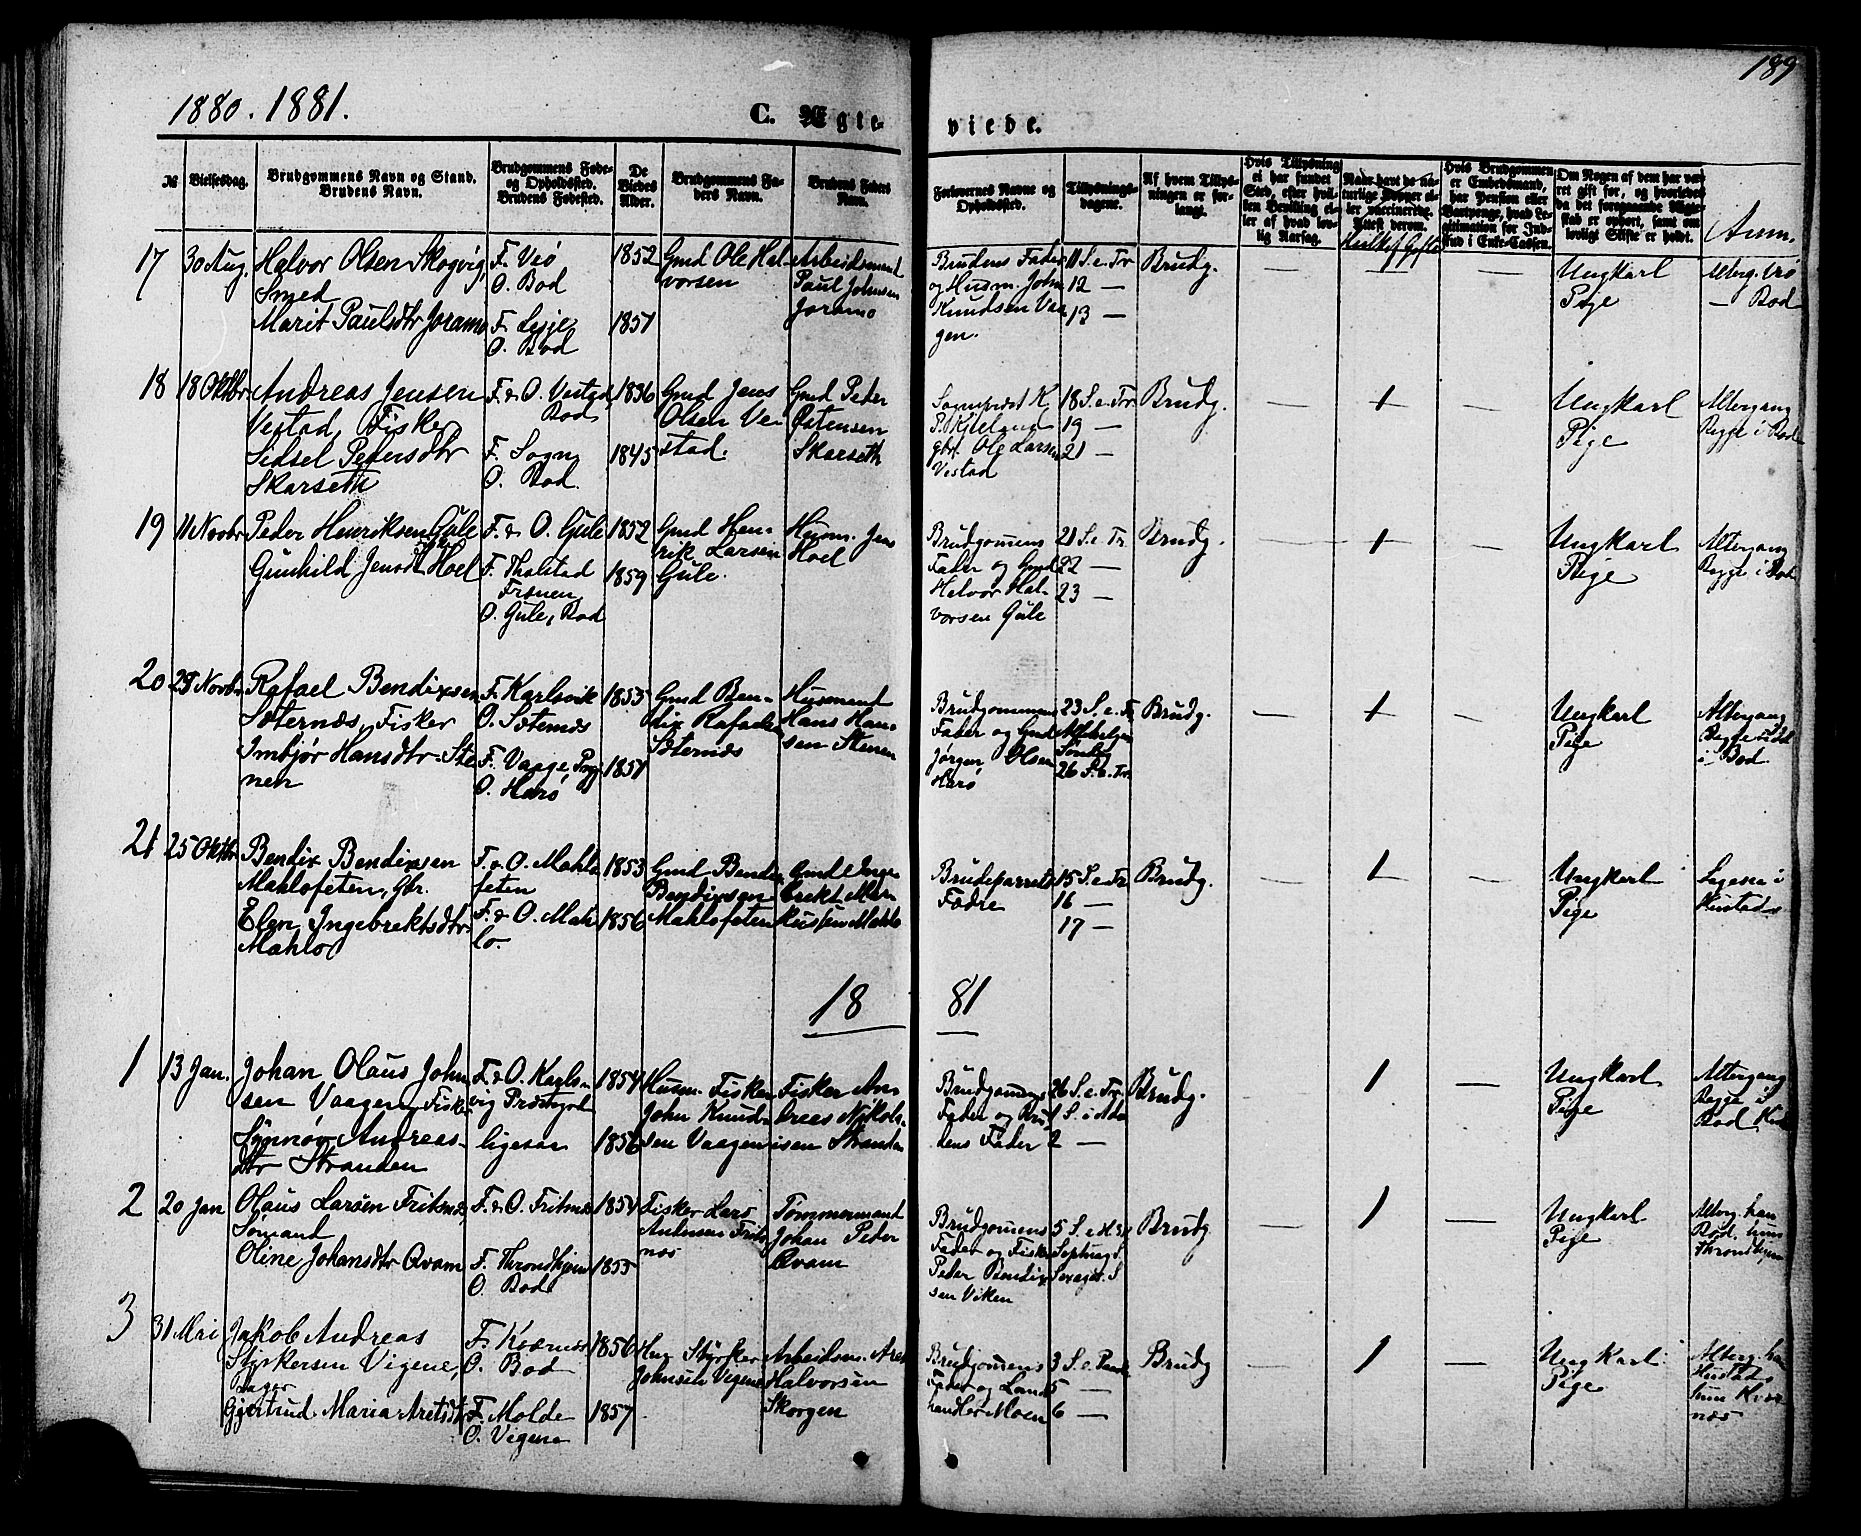 1880. 1881.
C. Ægte-
viede.
189
№
Vielsesdag.
Brudgommens Navn og Stand.
Brudens Navn.
Brudgommens Føde-
og Opholdssted.
Brudens Fødested.
De
Viedes
Alder.
Brudgommens Fa-
ders Navn.
Brudens Faders
Navn.
Forlovernes Navne og
Opholdssted.
Tillysnings-
dagene.
Af hvem Tillys-
ningen er for-
langt.
Hvis Tillysning
ei har fundet
Sted, efter hvil-
ken Bevilling el-
ler af hvad lov-
lig Aarsag.
Naar havt de na-
turlige Kopper el-
ler vaccinerede.
Attest derom.
Hvis Brudgommen
er Embedsmand,
har Pension eller
Vartpenge, hvad Le-
gitimation for Ind-
skud i Enke-Cassen.
Om Nogen af dem har væ-
ret gift før, og hvorledes
da det foregaaende Ægte-
skab er ophørt, samt om
lovligt Skifte er holdt.
Anm.
17
30 Aug.
Halvor Olsen Skogvig,
Smed
Marit Paulsdtr Joramo
F. Veø
O. Bod
F. Lesje
O. Bod
1852
1857
Gmd Ole Hal-
vorsen
Arbeidsmand
Paul Johnsen
Joramo
Brudens Fader
og Husm. John
Knudsen Vaa
gen.
11 S. e. Tr
12 —
13 —
Brudg.
Ungkarl
Pige
Alterg. Veø
— Bod
18
18 Oktbr
Andreas Jensen
Vestad, Fisker
Sidsel Pedersdtr
Skarseth
F. & O. Vestad,
Bod
F. Sogn
O. Bod.
1836
1845
Gmd Jens
Olsen Ve-
stad.
Gmd Peder
Østensen
Skarseth
Sogneprest K.
gbr. Ole Larsen
Vestad
18 S. e. Tr
19 —
21 —
Brudg.
1
Ungkarl
Pige
Altergang
Begge i Bod
19
11 Novbr
Peder Henriksen Gule
Gunhild Jensdtr Hoel
F. & O. Gule
F. Thalstad
Frænen
O. Gule, Bod
1852
1859
Gmd Hen-
rik Larsen
Gule.
Husm. Jens
Hoel
Brudgomens
Fader og Gmd
Halvor Hal-
vorsen Gule
21 S. e. Tr.
22 —
23 —
Brudg.
1
Ungkarl
Pige
Altergang
Begge i Bod
20
Rafael Bendixsen
Sæternæs, Fisker
Imbjør Hansdtr Ste
nen
F. Karlsvik
O. Sæternæs
F. Vaage,
O. Harø
1853
1857
Gmd Ben-
dix Rafaels
Sæternæs
Husmand
Hans Han-
sen Stenen
Brudgommens
Fader og Gmd
Jørgen Olsen
Harø
23 S. e. Tr
Allehelgen
Søndag
26 S. e. Tr.
Brudg.
1
Ungkarl
Pige
Altergang
i Bod
21
25 Oktbr
Bendix Bendixsen
Mahlofeten, Gbr.
Elen Ingebrektsdtr
Mahlo
F. & O. Mahlo
feten
F. & O. Mah
lo.
1853
1856
Gmd Bendix
Bendixsen
Mahlofeten
Gmd Inge
brekt Mar
kussen Mahlo
Brudeparrets
Fædre
15 S. e. Tr.
16 —
17 —
Brudg.
1
Ungkarl
Pige
Hustads
18 81
1
13 Jan.
Johan Olaus John
sen Vaagen, Fisker
Synnøv Andreas-
dtr Stranden
F. & O. Karls-
vig Præstegjeld
ligesaa
1854
1856
Husm. Fisker
John Knud-
sen Vaagen
Fisker An
dreas Nikola-
isen Stranden
Brudgomens
Fader og Bru
dens Fader
26 S. e. Tr.
1 S. i Adv
2 —
Brudg.
1
Ungkarl
Pige
Altergang
Begge i
Bod
2
20 Jan
Olaus Larsen Fritsnæs
Sømand
Oline Johansdtr Qvam
F. & O. Fritsnæs
F. Throndhjem
O. Bod
1854
1855
Fisker Lars
Andersen Frits
næs
Tømmermand
Johan Peder
Qvam
Brudgomens
Fader og Fisker
Peder Bendix
sen Viken
Septuag. S.
Sexages. S
Brudg
1
Ungkarl
Pige
Alterg. han
Bod, hun
Throndhjem
3
31 Mai
Jakob Andreas
Styrkersen Vigene,
Bager
Gjertrud Maria Aretsdtr
F. Kværnæs
O. Bod
F. Molde
O. Vigene
1856
1857
Styrker
Johnsen Vigene
Arbeidsm. Aret
Halvorsen
Skorgen
Brudgomens
Fader og Land
handler Moen
3 S. e. Paask
5 —
6 —
Brudg
1
Ungkarl
Pige
Alterg. han
Hustad,
hun Kvær
næs